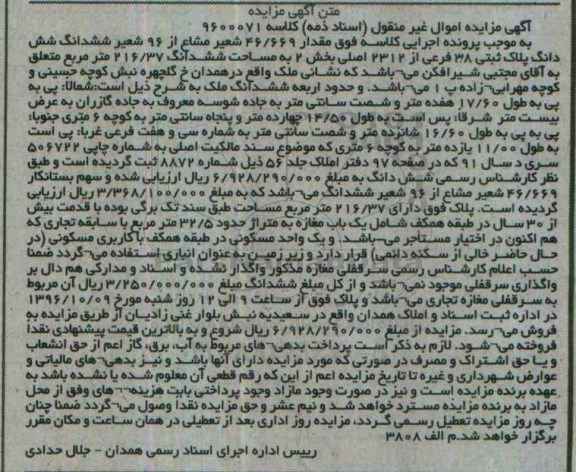 متن آگهی مزایده
آگهی مزایده اموال غیر منقول (اسناد ذمه) کلاسه ۹۶۰۰۰۷۱
به موجب پرونده اجرایی کلاسه فوق مقدار ۴۶/۶۶۹ شعیر مشاع از ۹۶ شعیر ششدانگ شش
دانگ پلاک ثبتی ۳۸ فرعی از ۲۳۱۲ اصلی بخش ۲ به مساحت ششدانگ ۲۱۶/۳۷ متر مربع متعلق
به آقای مجتبی شیرافکن می¬باشد که نشانی ملک واقع درهمدان خ گلچهره نبش کوچه حسینی و
کوچه مهرابی¬زاده پ ۱ می¬باشد. و حدود اربعه ششدانگ ملک به شرح ذیل است:شمالا: پی به
پی به طول ۱۷/۶۰ هفده متر و شصت سانتی متر به جاده شوسه معروف به جاده گازران به عرض
بیست متر شرقا: پس است به طول ۱۴/۵۰ چهارده متر و پنجاه سانتی متر به کوچه ۶ متری جنوبا:
پی به پی به طول ۱۶/۶۰ شانزده متر و شصت سانتی متر به شماره سی و هفت فرعی غربا: پی است
به طول ۱۱/۰۰ یازده متر به کوچه ۶ متری که موضوع سند مالکیت اصلی به شماره چاپی ۵۰۶۷۲۲
سری د سال ۹۱ که در صفحه ۹۷ دفتر املاک جلد ۵۶ ذیل شماره ۸۸۷۲ ثبت گردیده است و طبق
نظر کارشناس رسمی شش دانگ به مبلغ ۶/۹۲۸/۲۹۰/۰۰۰ ریال ارزیابی شده و سهم بستانکار
۴۶/۶۶۹ شعیر مشاع از ۹۶ شعیر ششدانگ می¬باشد که به مبلغ ۳/۳۶۸/۱۰۰/۰۰۰ ریال ارزیابی
گردیده است. پلاک فوق دارای ۲۱۶/۳۷ متر مربع مساحت طبق سند تک برگی بوده با قدمت بیش
از ۳۰ سال در طبقه همکف شامل یک باب مغازه به متراژ حدود ۳۲/۵ متر مربع با سابقه تجاری که
هم اکنون در اختیار مستاجر می¬باشد. و یک واحد مسکونی در طبقه همکف با کاربری مسکونی (در
حال حاضر خالی از سکنه دائمی) قرار دارد و زیر زمین به عنوان انباری استفاده می¬گردد ضمنا
حسب اعلام کارشناس رسمی سرقفلی مغازه مذکور واگذار نشده و اسناد و مدارکی هم دال بر
واگذاری سرقفلی موجود نمی¬باشد و از کل مبلغ ششدانگ مبلغ ۳/۲۵۰/۰۰۰/۰۰۰ ریال آن مربوط
به سرقفلی مغازه تجاری می¬باشد و پلاک فوق از ساعت ۹ الی ۱۲ روز شنبه مورخ ۱۳۹۶/۱۰/۰۹
در اداره ثبت اسناد و املاک همدان واقع در سعیدیه نبش بلوار غنی زادیان از طریق مزایده به
فروش می¬رسد. مزایده از مبلغ ۶/۹۲۸/۲۹۰/۰۰۰ ریال شروع و به بالاترین قیمت پیشنهادی نقدا
فروخته می¬شود. لازم به ذکر است پرداخت بدهی¬های مربوط به آب، برق، گاز اعم از حق انشعاب
و یا حق اشتراک و مصرف در صورتی که مورد مزایده دارای آنها باشد و نیز بدهی¬های مالیاتی و
عوارض شهرداری و غیره تا تاریخ مزایده اعم از این که رقم قطعی آن معلوم شده یا نشده باشد به
عهده برنده مزایده است و نیز در صورت وجود مازاد وجود پرداختی بابت هزینه¬¬های وفق از محل
مازاد به برنده مزایده مسترد خواهد شد و نیم عشر و حق مزایده نقدا وصول می¬گردد ضمنا چنان
چه روز مزایده تعطیل رسمی گردد، مزایده روز اداری بعد از تعطیلی در همان ساعت و مکان مقرر
برگزار خواهد شد.م الف ۳۸۰۸
رییس اداره اجرای اسناد رسمی همدان - جلال حدادی